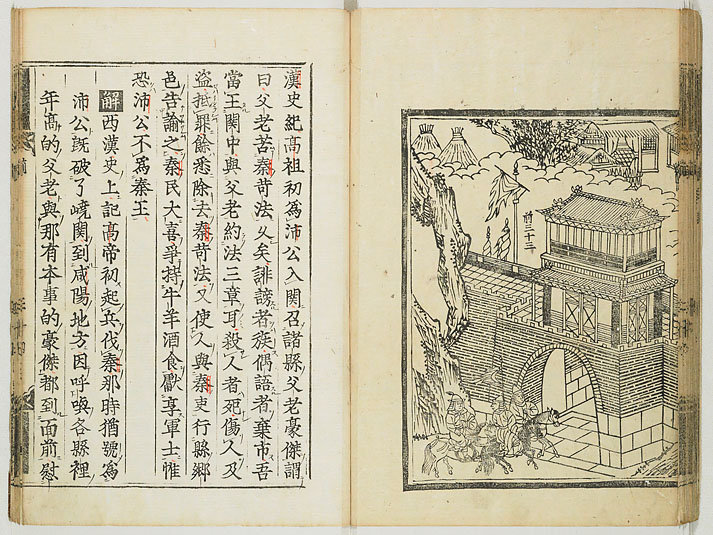 前三十三
漢史紀高祖初爲沛公入關召諸縣父老豪傑謂
曰父老苦秦苛法久矣誹謗者族偶語者棄市吾
當王關中與父老約法三章耳殺人者死傷人及
盜抵罪餘悉除去秦苛法又使人與秦吏行縣鄉
邑告諭之秦民大喜爭持牛羊酒食獻享軍士惟
恐沛公不爲秦王
解西漢史上記高帝初起兵伐秦那時猶號爲
沛公既破了嶢關到咸陽地方因呼喚各縣裡
年高的父老與那有本事的豪傑都到面前慰